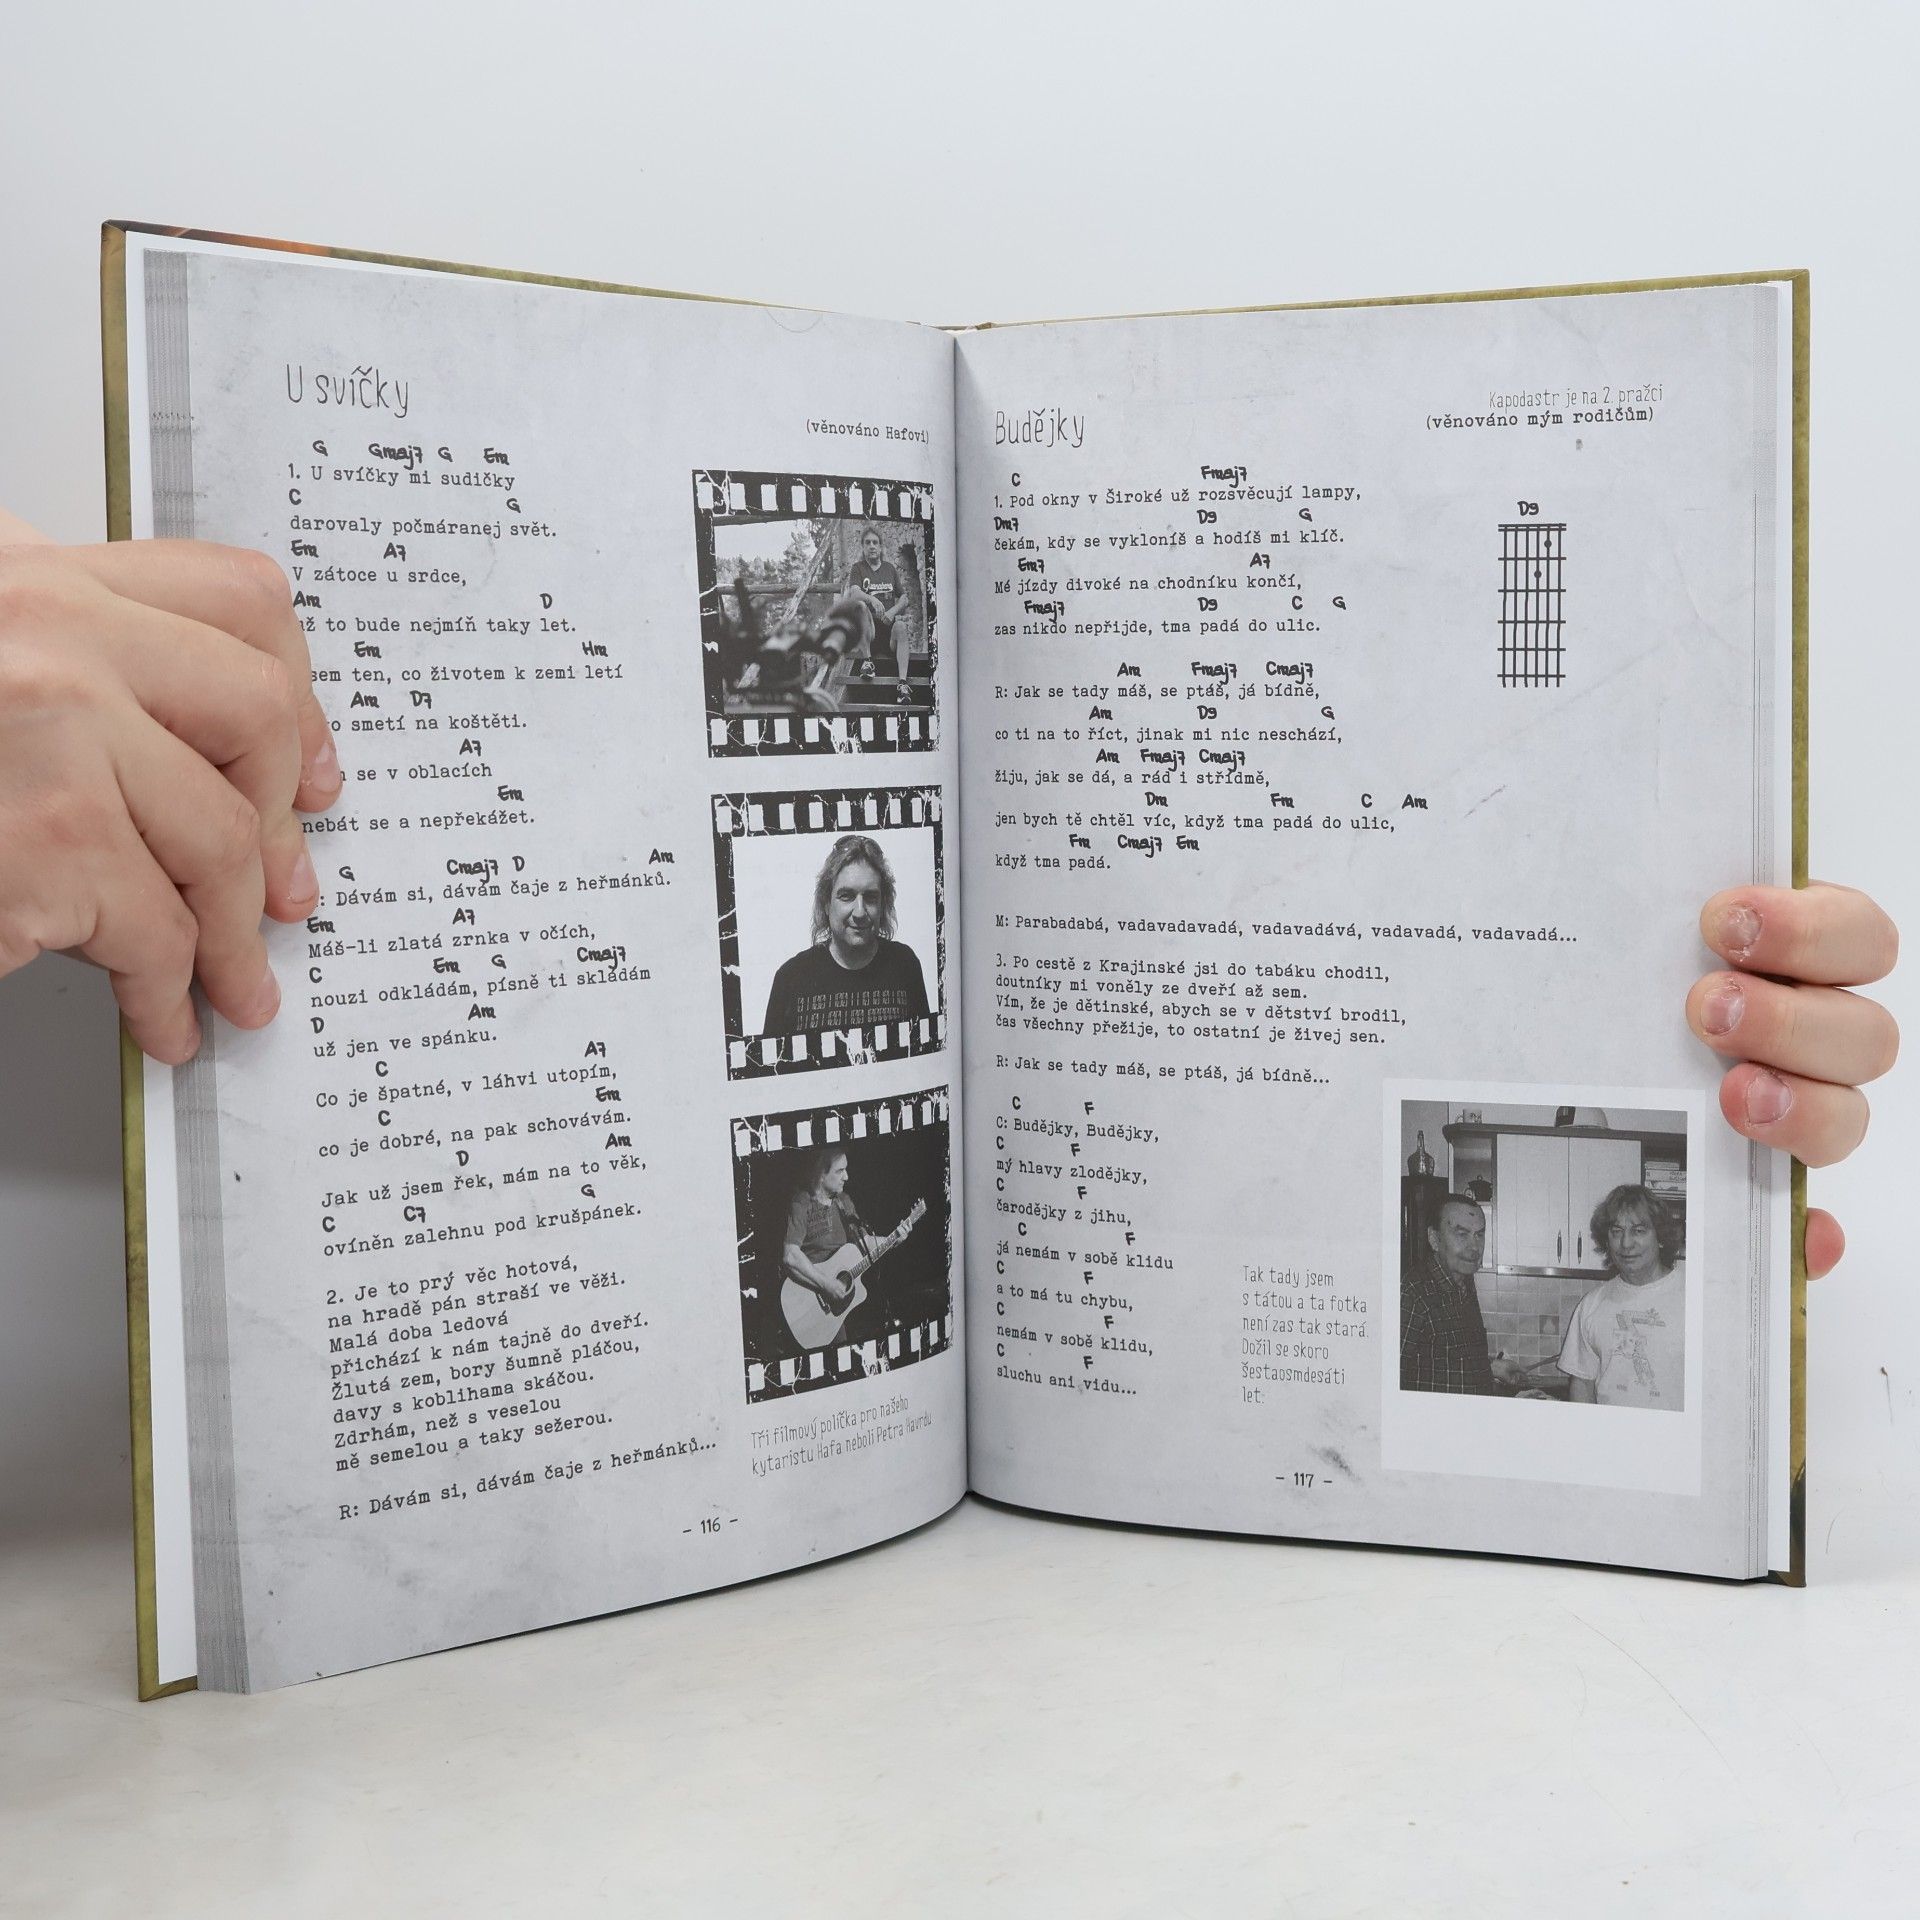 U svíčky
(věnováno Hafovi)
G Gmaj7 G Em
1. U svíčky mi sudičky
C G
darovaly počmáranej svět.
Em A7
V zátoce u srdce,
Am D
už to bude nejmíň taky let.
Em Hm
sem ten, co životem k zemi letí
Am D7
smetí na koštěti.
A7
se v oblacích
Em
nebát se a nepřekážet.
G Cmaj7 D Am
: Dávám si, dávám čaje z heřmánků.
Em A7
Máš-li zlatá zrnka v očích,
C Em G Cmaj7
nouzi odkládám, písně ti skládám
D Am
už jen ve spánku.
C A7
Co je špatné, v láhvi utopím,
C Em
co je dobré, na pak schovávám.
D Am
Jak už jsem řek, mám na to věk,
C C7 G
ovíněn zalehnu pod krušpánek.
2. Je to prý věc hotová,
na hradě pán straší ve věži.
Malá doba ledová
přichází k nám tajně do dveří.
Žlutá zem, bory šumně pláčou,
davy s koblihama skáčou.
Zdrhám, než s veselou
mě semelou a taky sežerou.
R: Dávám si, dávám čaje z heřmánků...
Tři filmový políčka pro našeho
kytaristu Hafa neboli Petra Havrdu
- 116 -
Budějky
Kapodastr je na 2. pražci
(věnováno mým rodičům)
D9
C Fmaj7
1. Pod okny v Široké už rozsvěcují lampy,
Dm7 D9 G
čekám, kdy se vykloníš a hodíš mi klíč.
Em7 A7
Mé jízdy divoké na chodníku končí,
Fmaj7 D9 C G
zas nikdo nepřijde, tma padá do ulic.
Am Fmaj7 Cmaj7
R: Jak se tady máš, se ptáš, já bídně,
Am D9 G
co ti na to říct, jinak mi nic neschází,
Am Fmaj7 Cmaj7
žiju, jak se dá, a rád i střídmě,
Dm Fm C Am
jen bych tě chtěl víc, když tma padá do ulic,
Fm Cmaj7 Em
když tma padá.
M: Parabadabá, vadavadavadá, vadavadává, vadavadá, vadavadá...
3. Po cestě z Krajinské jsi do tabáku chodil,
doutníky mi voněly ze dveří až sem.
Vím, že je dětinské, abych se v dětství brodil,
čas všechny přežije, to ostatní je živej sen.
R: Jak se tady máš, se ptáš, já bídně...
C F
C: Budějky, Budějky,
C F
mý hlavy zlodějky,
C F
čarodějky z jihu,
C F
já nemám v sobě klidu
C F
a to má tu chybu,
C F
nemám v sobě klidu,
C F
sluchu ani vidu...
Tak tady jsem
s tátou a ta fotka
není zas tak stará.
Dožil se skoro
šestaosmdesáti
let.
- 117 -